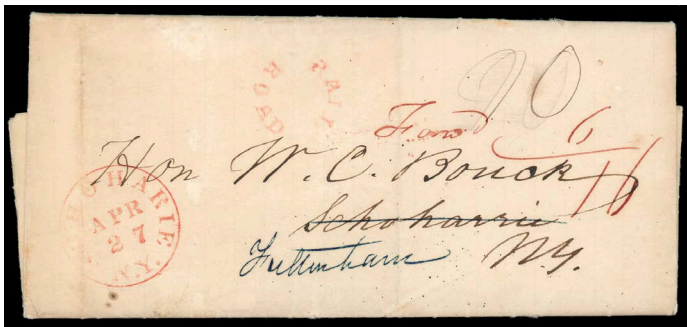 ROAD
20
Forwd 6
16
Hon W. C. Bouck
Schoharrie
Fultenham NY.
SCHOHARIE
APR
27
N.Y.